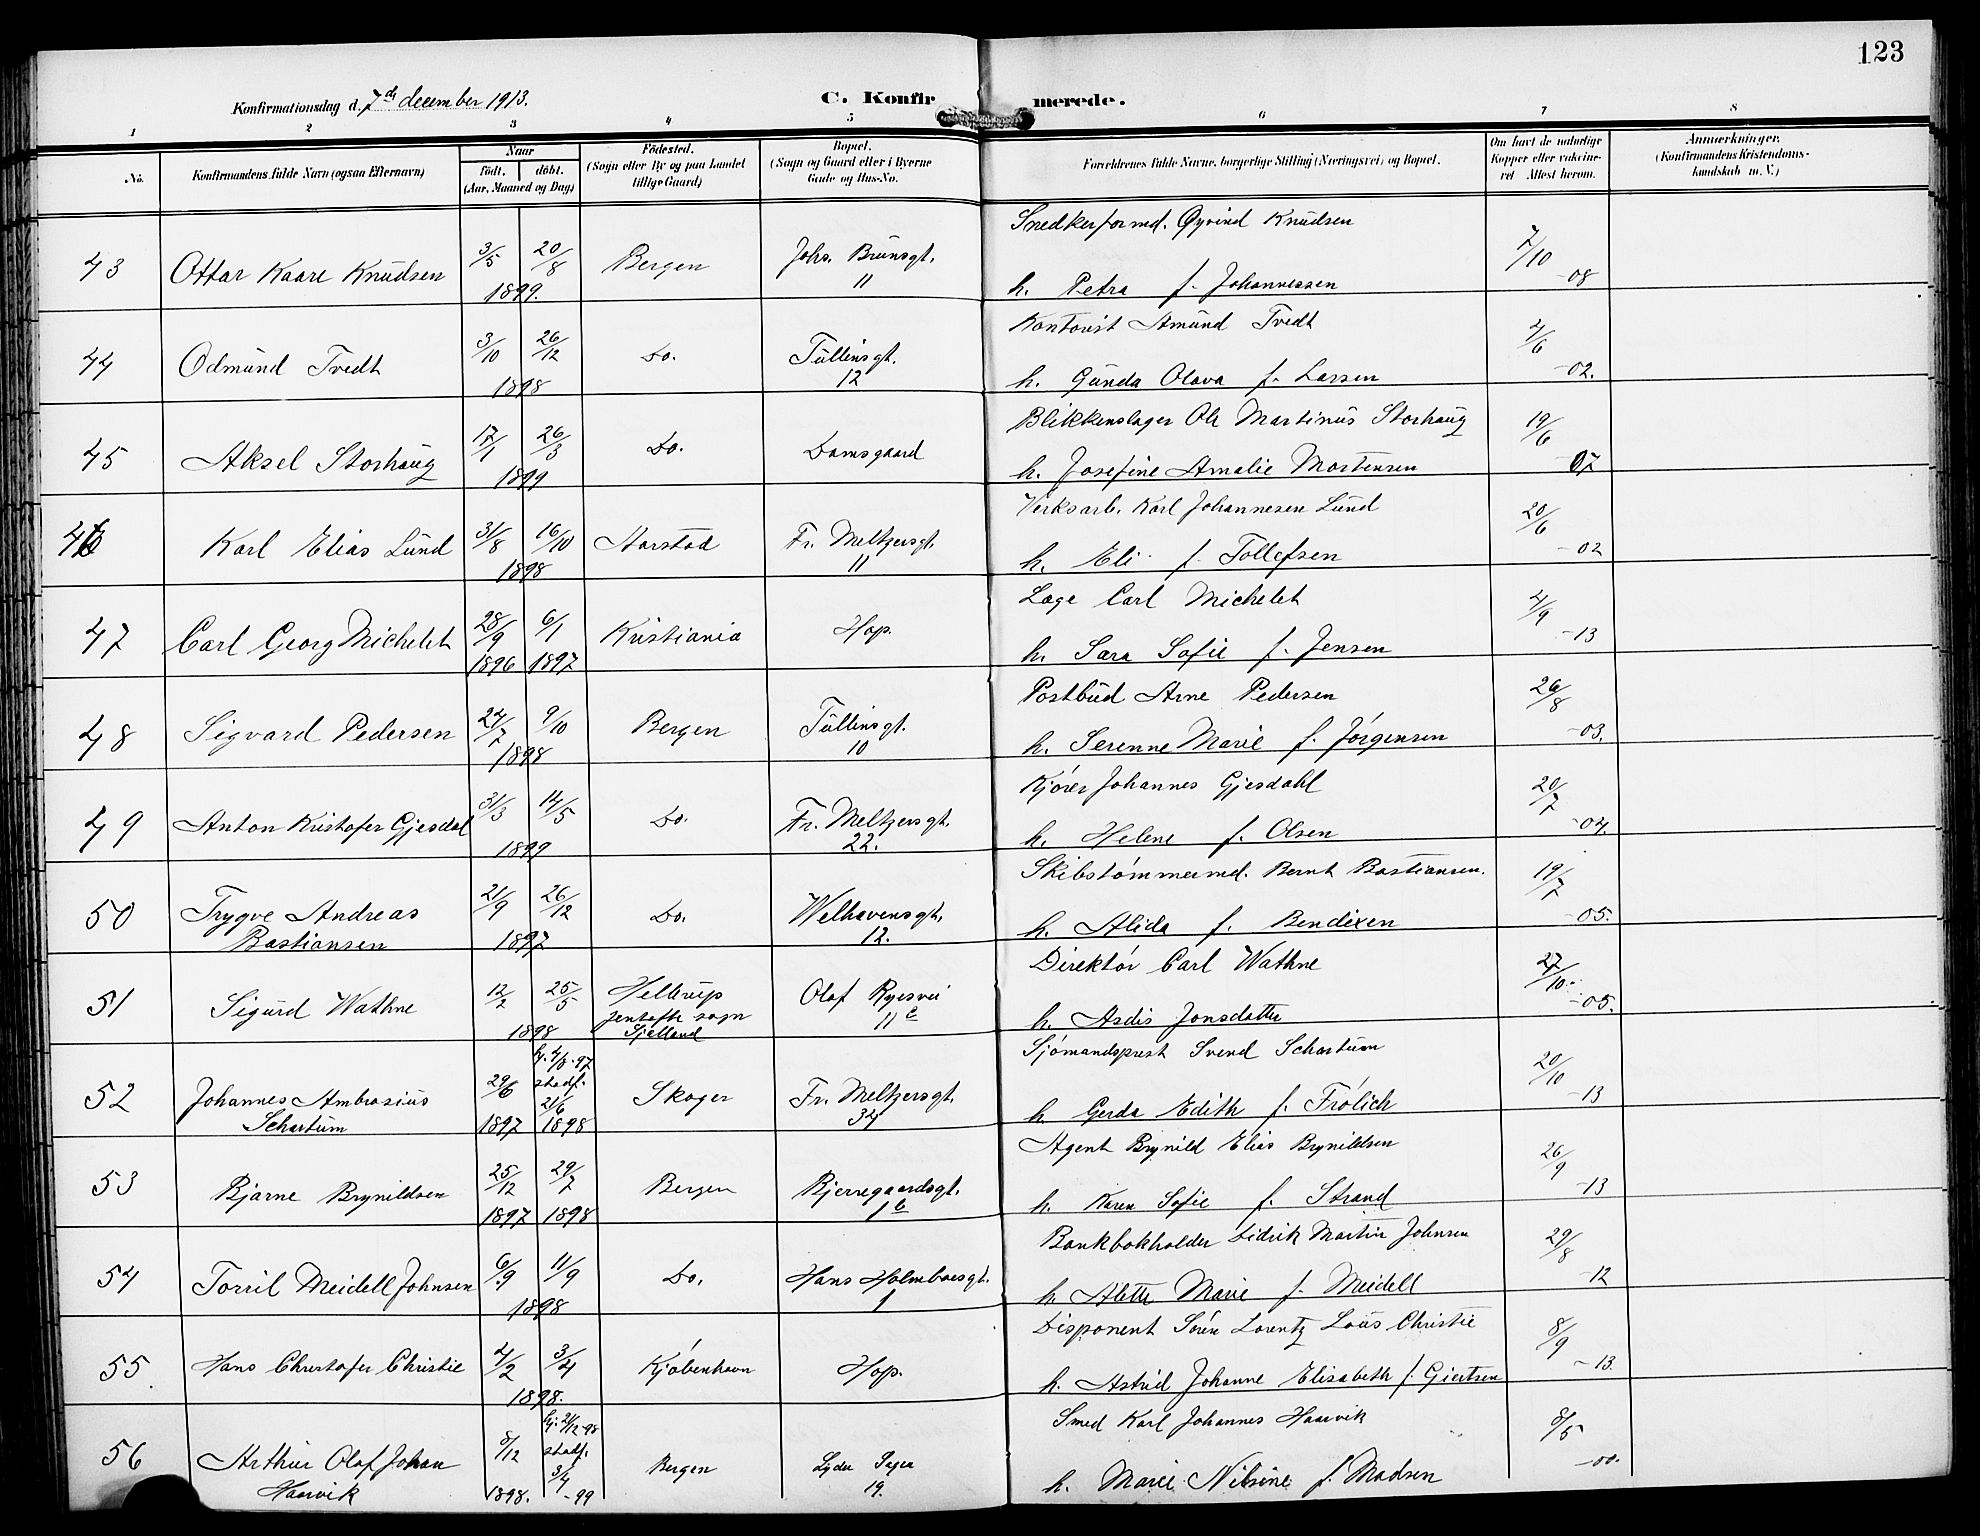 123
Konfirmationsdag d. 7de december 1913.
C. Konfir merede.
1 2 3 4 5 6 7 8
No. Konfirmandens fulde Navn (ogsaa Efternavn) Naar födt. döbt. (Aar, Maaned og Dag) Födested. (Sogn eller By og paa Landet tillige Gaard) Bopæl. (Sogn og Gaard eller i Byerne Gade og Hus-No. Forældrenes fulde Navne, borgerlige Stilling (Næringsvei) og Bopæl. Om havt de naturlige Kopper eller vakcineret Attest herom. Anmærkninger. (Konfirmandens Kristendomskundskab m. V.)
43 Ottar Kaare Knudsen 3/5 20/8 1899. Bergen Johs. Brunsgt. 11 Snedkerformd. Øyvind Knudsen 7/10 -08
h. Petra f. Johannessen
44 Odmund Tvedt 3/10 26/12 1898 Do. Tullinsgt. 12 Kontorist Amund Tvedt 4/6 -02.
h. Gunda Olava f. Larsen
45 Aksel Storhaug 17/1 26/3 1899 Do. Damsgaard Blikkenslager Ole Martinus Storhaug 19/6 07
h. Josefine Amalie Mortensen
46 Karl Elias Lund 31/8 16/10 1898 Aarstad Fr. Meltzersgt. 11 Verksarb. Karl Johannesen Lund 20/6 -02
h. Eli f. Tollefsen
47 Carl Georg Michelet 28/9 1896 6/1 1897 Kristiania Hop. Læge Carl Michelet 4/9 -13
h. Sara Sofie f. Jensen
48 Sigvard Pedersen 24/7 9/10 1898 Bergen Tullinsgt. 10 Postbud Arne Pedersen 26/8 -03.
h. Serenne Marie f. Jörgensen
49 Anton Kristofer Gjesdal 31/3 14/5 1899 Do. Fr. Meltzersgt. 22. Kjörer Johannes Gjesdahl 20/7 -04.
h. Helene f. Olsen
50 Trygve Andreas Bastiansen 21/9 26/12 1897 Do. Welhavensgt. 12. Skibstömmermd. Bernt Bastiansen. 19/7 -05.
h. Alida f. Bendixen
51 Sigurd Wathne 12/2 25/5 1898 Hellerup Jentofte sogn Sjelland Olaf Ryesvei 11c Direktör Carl Wathne 27/10 -05.
h. Asdis Jonsdatter
52 Johannes Ambrosius Schartum 29/6 1897 hj. 4/8-97 stadf. 21/6 1898 Skoger Fr. Meltzersgt. 34 Sjömandsprest Svend Schartum 20/10 -13
h. Gerda Edith f. Frölich
53 Bjarne Brynildsen 25/12 1897 29/7 1898 Bergen Bjerregaardsgt. 1b Agent Brynild Elias Brynildsen 26/9 -13
h. Karen Sofie f. Strand
54 Torril Meidell Johnsen 6/9 11/9 1898 Do. Hans Holmboesgt. 1 Bankbokholder Didrik Martin Johnsen 29/8 -12
h. Alette Marie f. Meidell
55 Hans Christofer Christie 4/2 3/4 1898. Kjøbenhavn Hop. Disponent Sören Lorentz Louis Christie 8/9 -13.
h. Astrid Johanne Elisabeth f. Giertsen
56 Arthur Olaf Johan Haarvik 8/12 1898. hj. 21/12-98 stadf. 3/4 -99 Bergen Lyder 19. Smed Karl Johannes Haarvik 8/5 -00.
h. Marie Nilsine f. Madsen